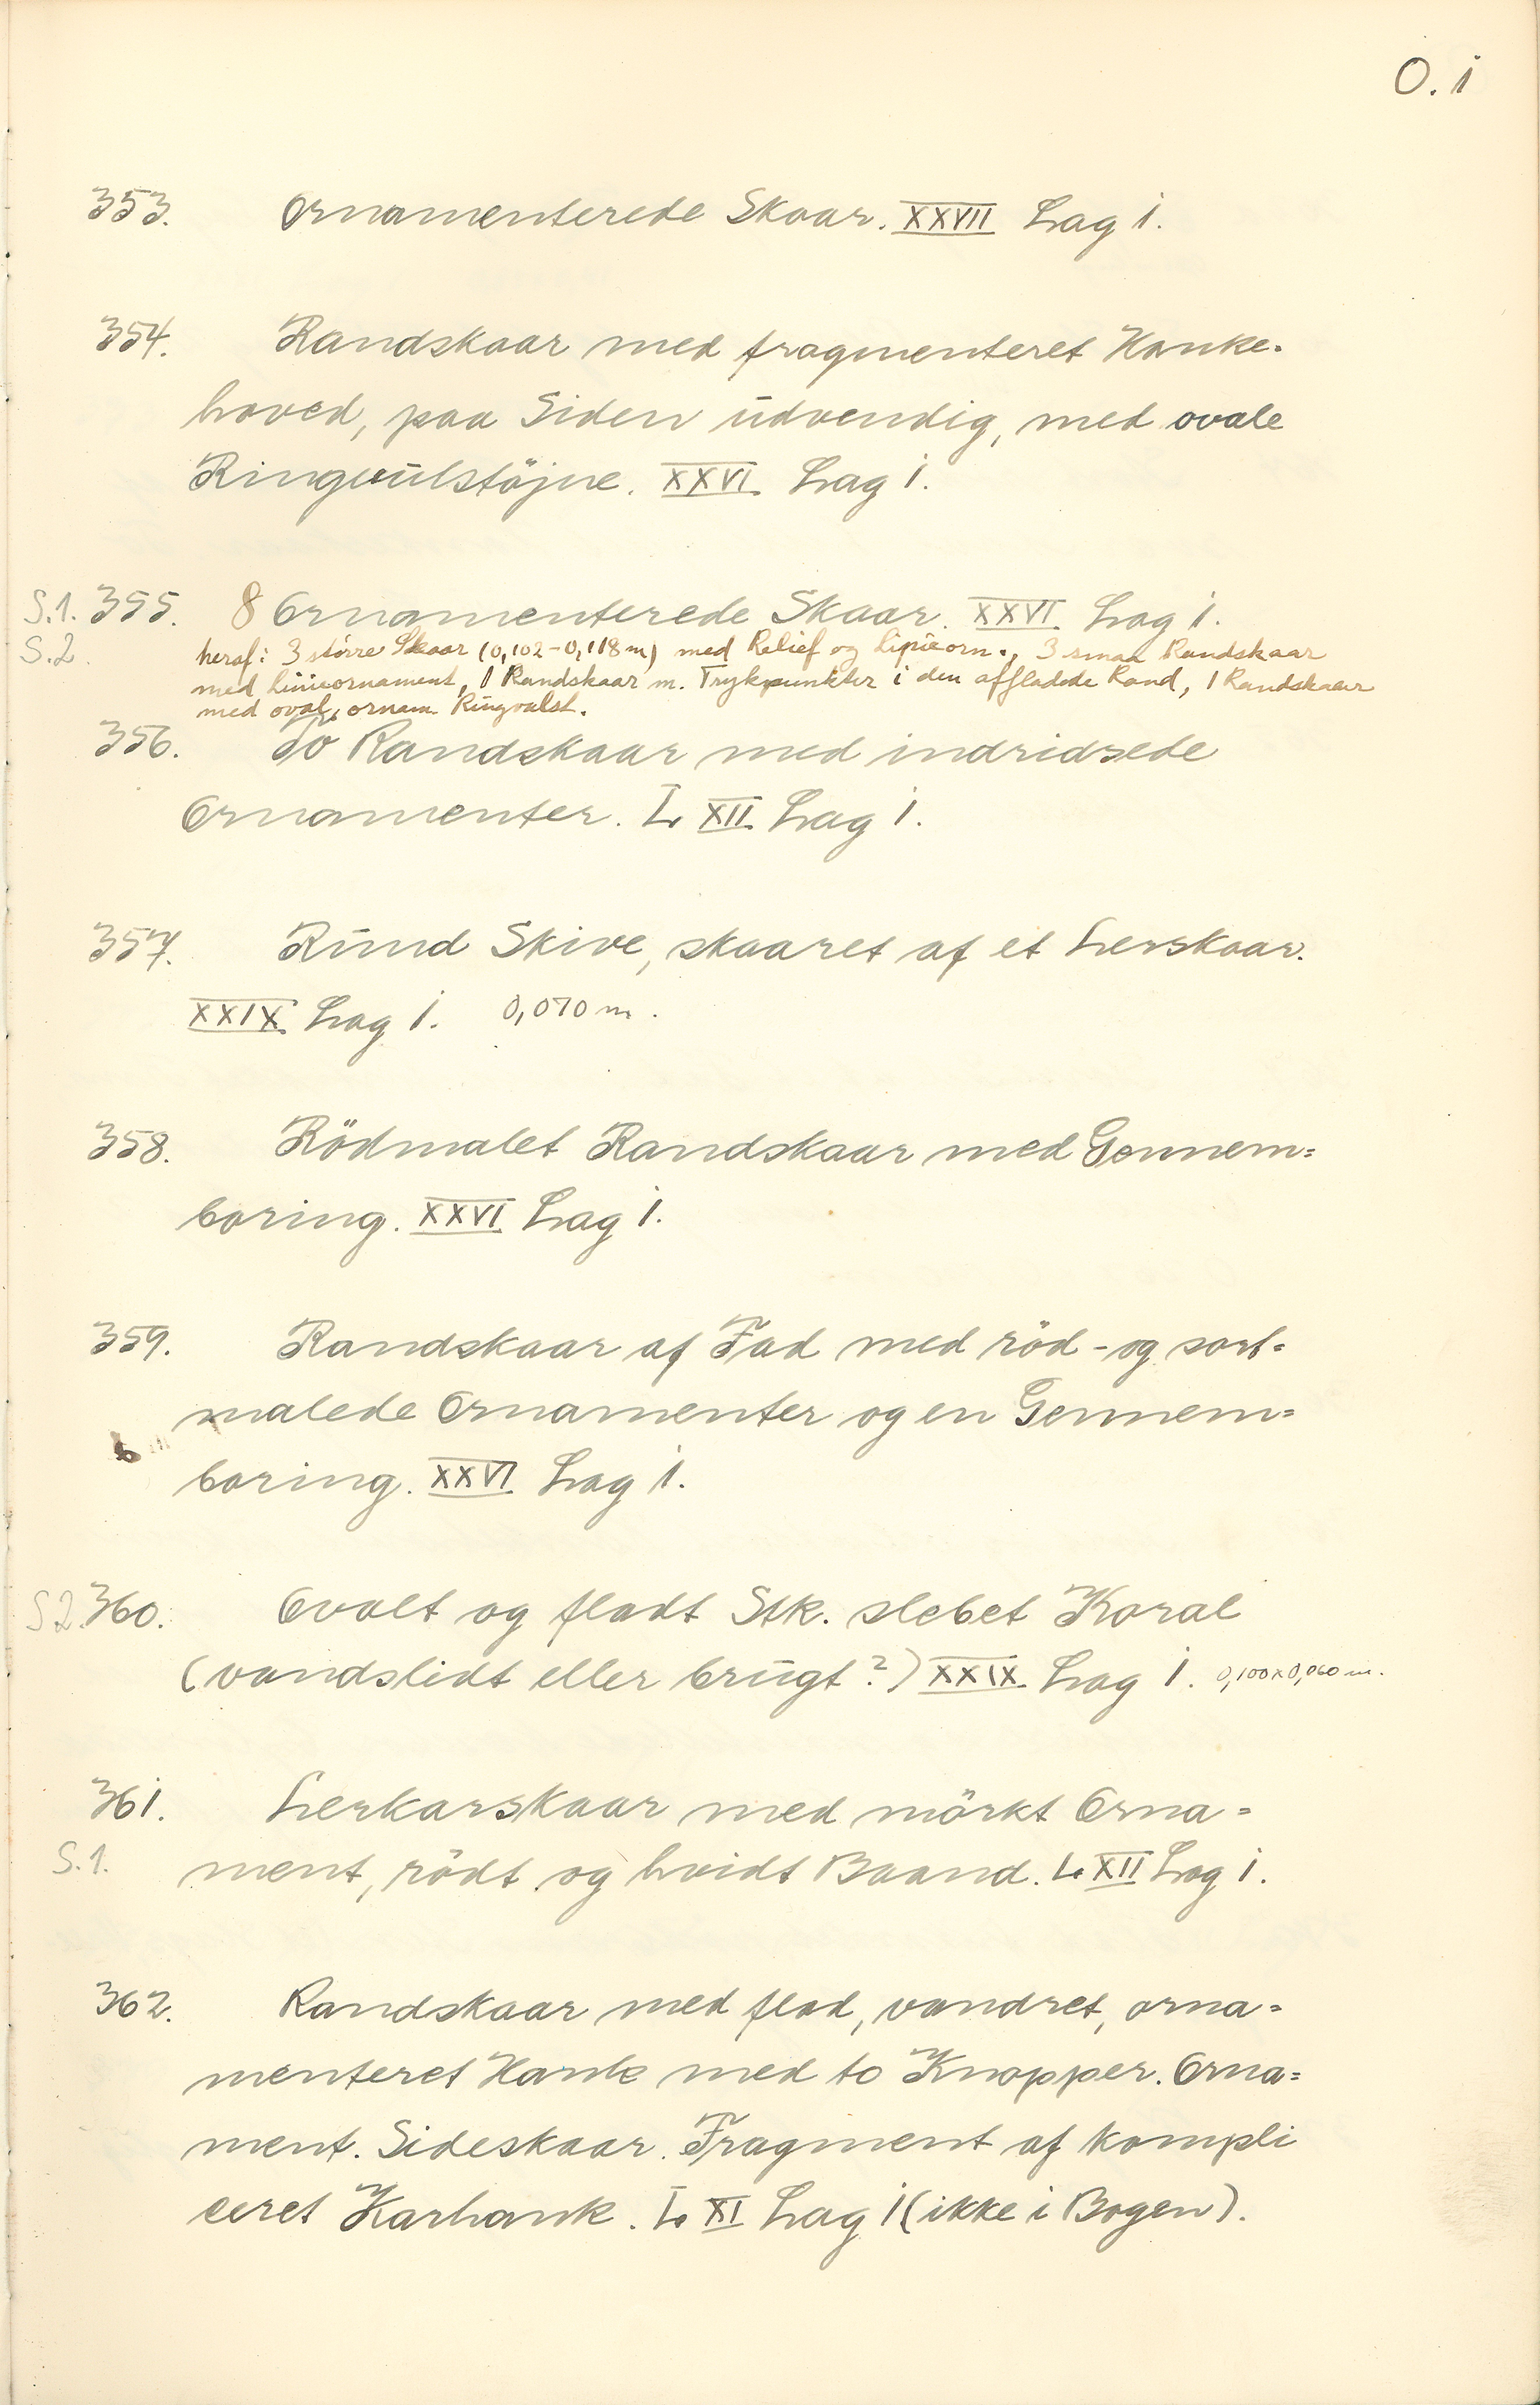 O. 1
353. Ornamenterede Skaar. XXVII Lag 1.
354. Randskaar med fragmenteret Hanke-
hoved, paa Siden udvendig, med ovale
Ringvulstöjne. XXVI Lag 1.
S.1. 355. 8 Ornamenterede Skaar. XXVI Lag 1.
S.2. heraf: 3 större Skaar (0,102-0,118 m) med Relief og Linieorn., 3 smaa Randskaar
med Linieornament, 1 Randskaar m. Trykpunkter i den affladede Rand, 1 Randskaar
med oval, ornam. Ringvulst.
356. To Randskaar med indridsede
Ornamenter. L XII Lag 1.
357. Rund Skive, skaaret af et Lerskaar.
XXIX Lag 1. 0,070 m.
358. Rödmalet Randskaar med Gennem=
boring. XXVI Lag 1.
359. Randskaar af Fad med röd- og sort=
malede Ornamenter og en Gennem=
boring. XXVI Lag 1.
S2. 360. Ovalt og fladt Stk. slebet Koral
(vandslidt eller brugt?) XXIX Lag 1. 0,100x0,060 m.
361. Lerkarskaar med mörkt Orna=
S.1. ment, rödt og hvidt Baand. L XII Lag 1.
362. Randskaar med flad, vandret, orna=
menteret Hank med to Knopper. Orna=
ment. Sideskaar. Fragment af kompli
ceret Karhank. L XI Lag 1 (ikke i Bogen).